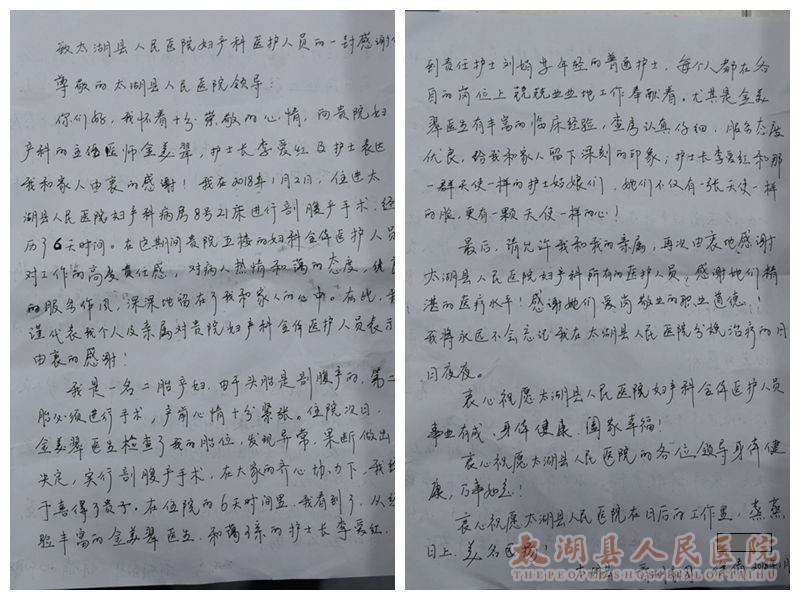 致太湖县人民医院妇产科医护人员的一封感谢
尊敬的太湖县人民医院领导：
你们好，我怀着十分崇敬的心情，向贵院妇
产科的主治医师金美翠，护士长李爱红及护士表达
我和家人由衷的感谢！我在2018年1月2日，住进太
湖县人民医院妇产科病房8号21床进行剖腹产手术，经
历了6天时间。在这期间贵院五楼的妇科全体医护人员
对工作的高度责任感，对病人热情和蔼的态度，
的服务作风，深深地留在了我和家人的心中。在此，我
谨代表我个人及亲属对贵院妇产科全体医护人员表示
由衷的感谢！
我是一名二胎产妇，由于头胎是剖腹产的，第二
胎必须进行手术，产前心情十分紧张。住院次日，
金美翠医生检查了我的胎位，发现异常，果断做出
决定，实行剖腹产手术，在大家的齐心协力下，我终
于喜得了贵子。在住院的6天时间里，我看到了，从经
验丰富的金美翠医生、和蔼可亲的护士长李爱红、
到责任护士刘娟等年轻的普通护士，每个人都在各
自的岗位上兢兢业业地工作奉献着。尤其是金美
翠医生有丰富的临床经验，查房认真仔细，服务态度
优良，给我和家人留下深刻的印象；护士长李爱红和那
一群天使一样的护士姑娘们，她们不仅有一张天使一样
的脸，更有一颗天使一样的心！
最后，请允许我和我的亲属，再次由衷地感谢
太湖县人民医院妇产科所有的医护人员，感谢她们精
湛的医疗水平！感谢她们爱岗敬业的职业道德！！
我将永远不会忘记我在太湖县人民医院分娩治疗的日
日夜夜。
衷心祝愿太湖县人民医院妇产科全体医护人员
事业有成、身体健康、国家幸福！
衷心祝愿太湖县人民医院的各位领导身体健
康，万事如意！
衷心祝愿太湖县人民医院在日后的工作里，蒸蒸
日上、美名远扬！
2018年1月
太湖县人民医院
THEPEOPLE'SHOSPITALOFTAIHU